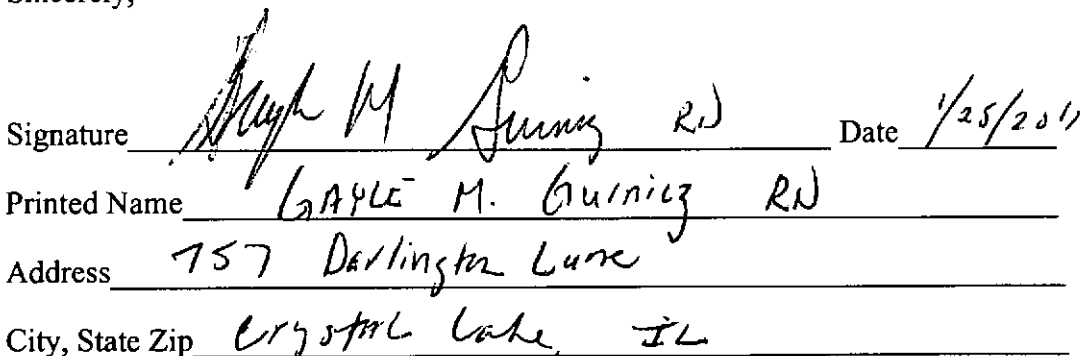 Sincerely,
Signature Gayle M Gurnicz RN Date 1/25/2011
Printed Name GAYLE M. Gurnicz RN
Address 757 Darlington Lane
City, State Zip Crystal Lake, IL